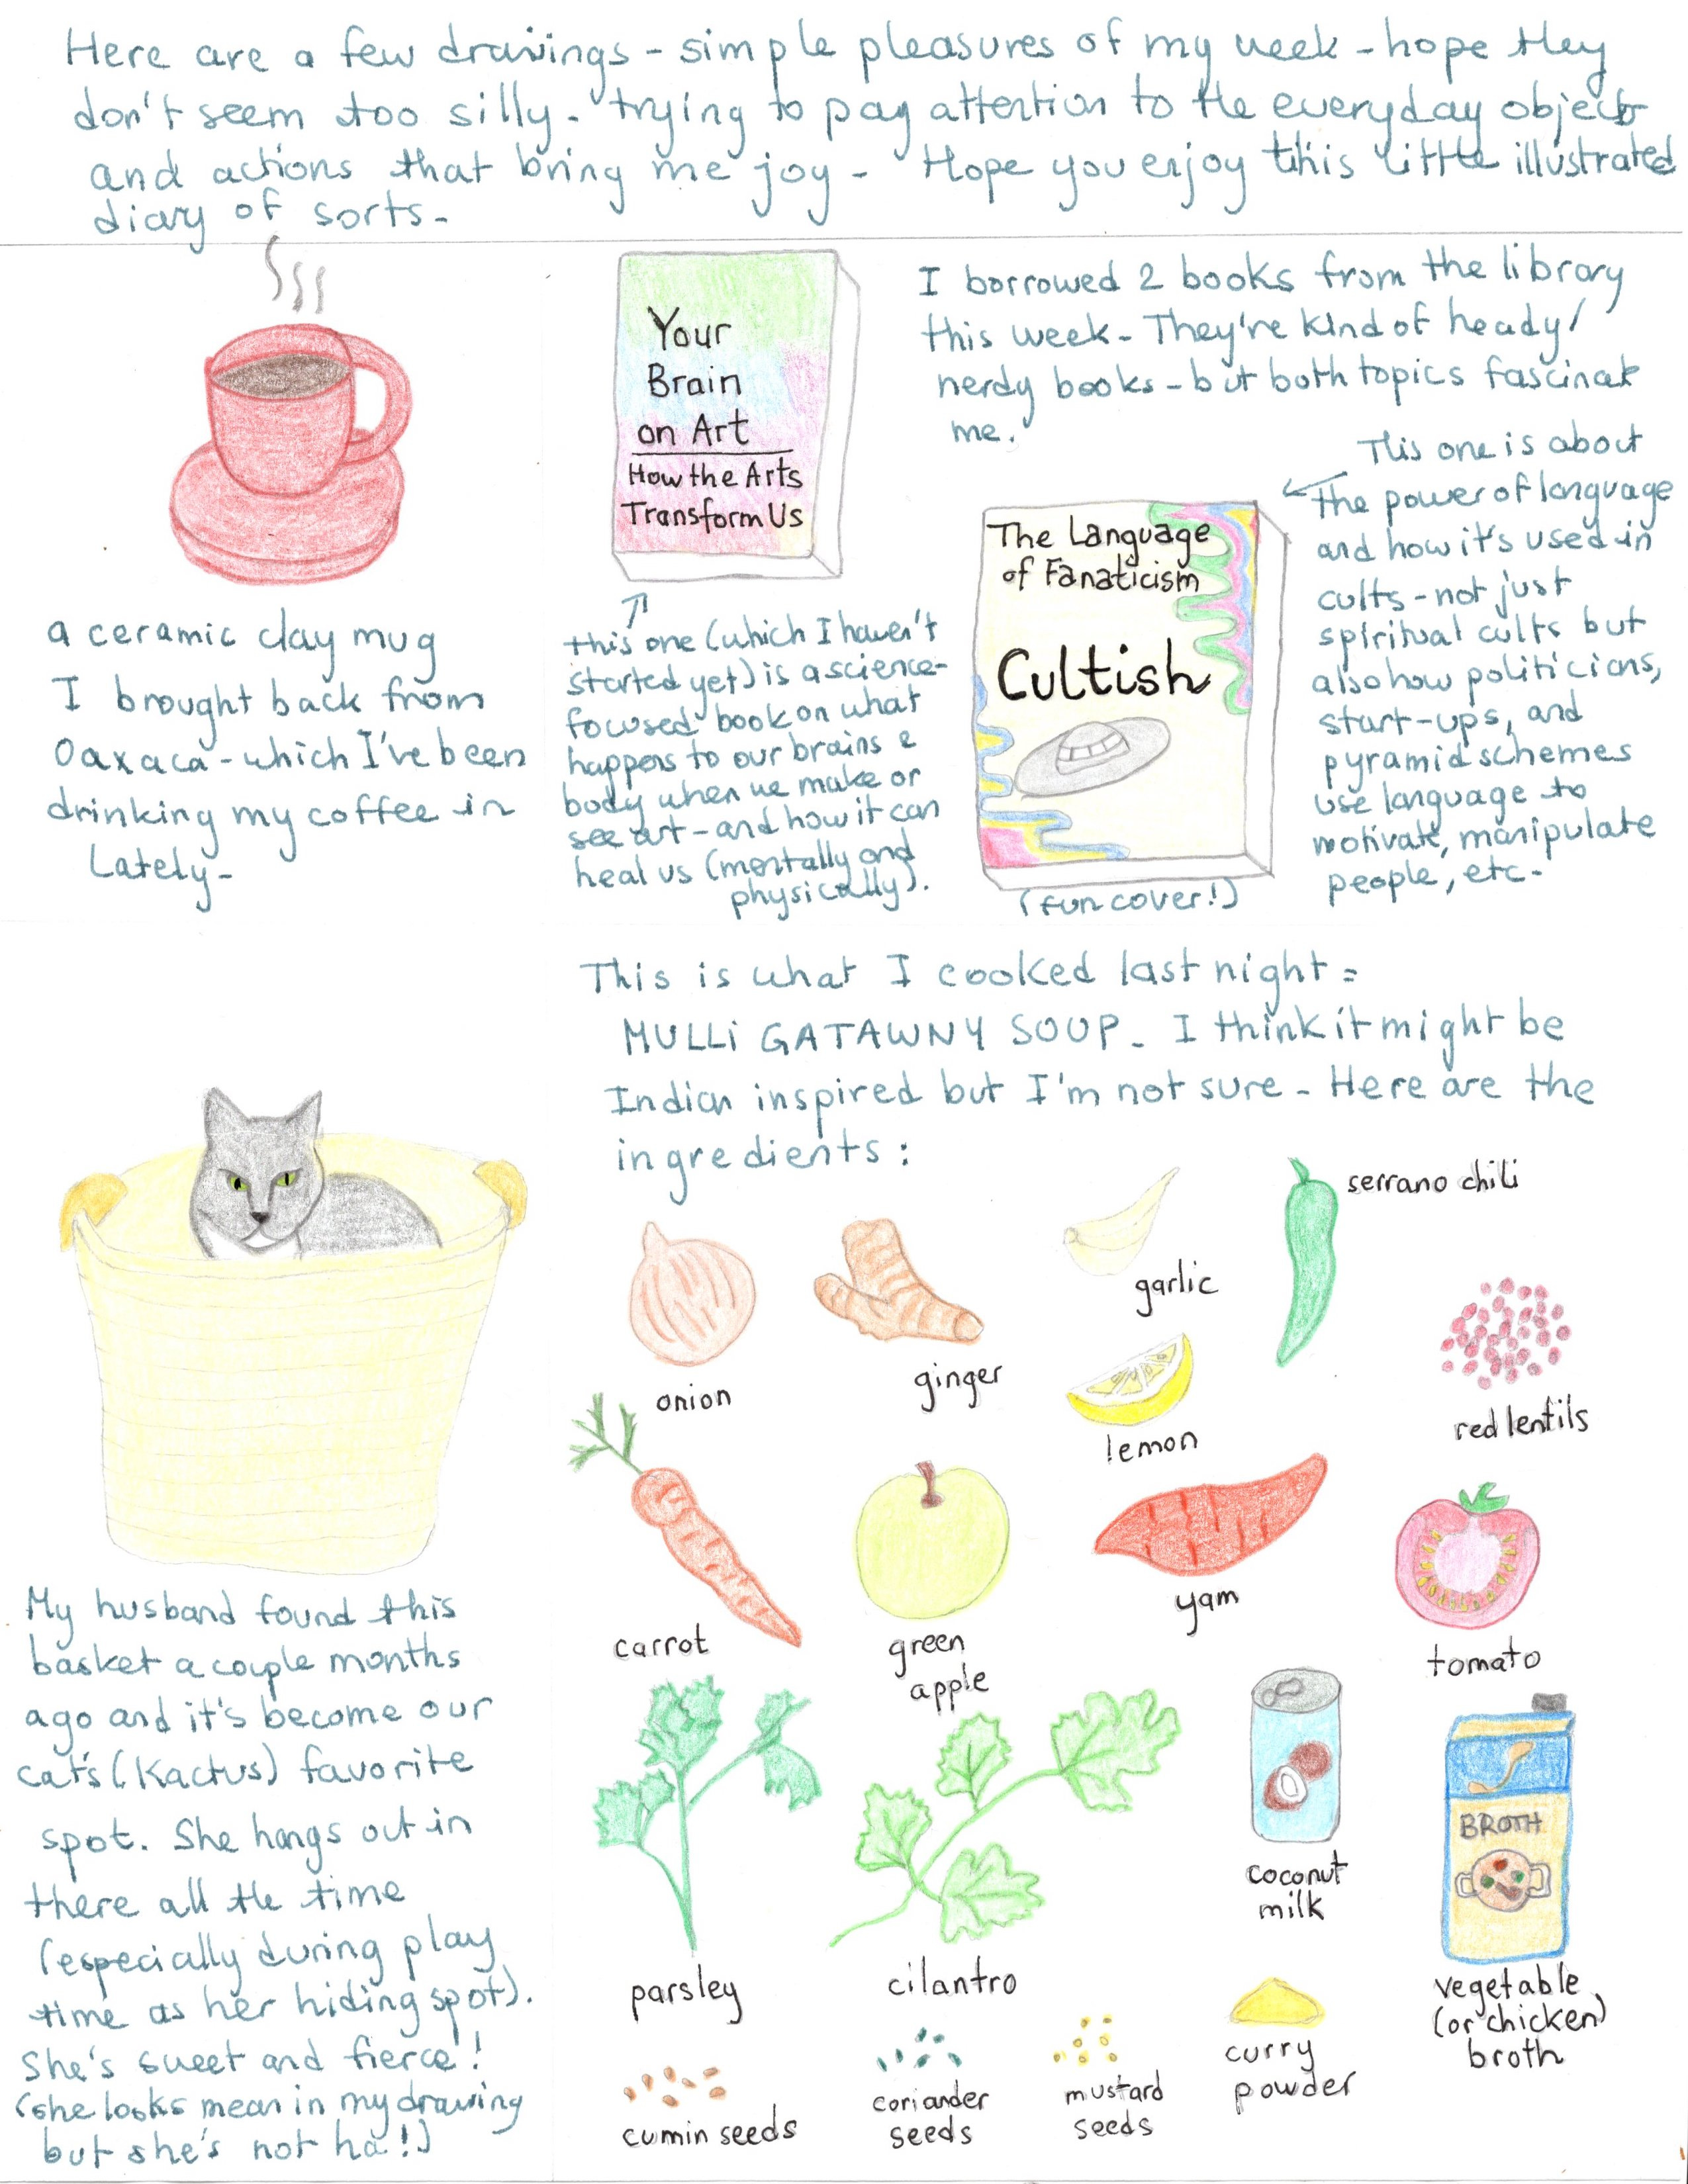 Here are a few drawings - simple pleasures of my week - hope they
don't seem too silly - trying to pay attention to the everyday objects
and actions that bring me joy - Hope you enjoy this little illustrated
diary of sorts -
a ceramic clay mug
I brought back from
Oaxaca - which I've been
drinking my coffee in
Lately -
Your
Brain
on Art
How the Arts
Transform Us
this one (which I haven't
started yet) is a science-
focused book on what
happens to our brains &
body when we make or
see art - and how it can
heal us (mentally and
physically).
I borrowed 2 books from the library
this week - They're kind of heady/
nerdy books - but both topics fascinate
me.
The Language
of Fanaticism
Cultish
(fun cover!)
This one is about
the power of language
and how it's used in
cults - not just
spiritual cults but
also how politicians,
start-ups, and
pyramid schemes
use language to
motivate, manipulate
people, etc -
My husband found this
basket a couple months
ago and it's become our
cat's (Kactus) favorite
spot. She hangs out in
there all the time
(especially during play
time as her hiding spot).
She's sweet and fierce!
(she looks mean in my drawing
but she's not ha!)
This is what I cooked last night =
MULLiGATAWNY SOUP - I think it might be
Indian inspired but I'm not sure - Here are the
ingredients:
onion
ginger
garlic
serrano chili
lemon
red lentils
carrot
green
apple
yam
tomato
parsley
cilantro
coconut
milk
BROTH
vegetable
(or chicken)
broth
cumin seeds
coriander
seeds
mustard
seeds
curry
powder